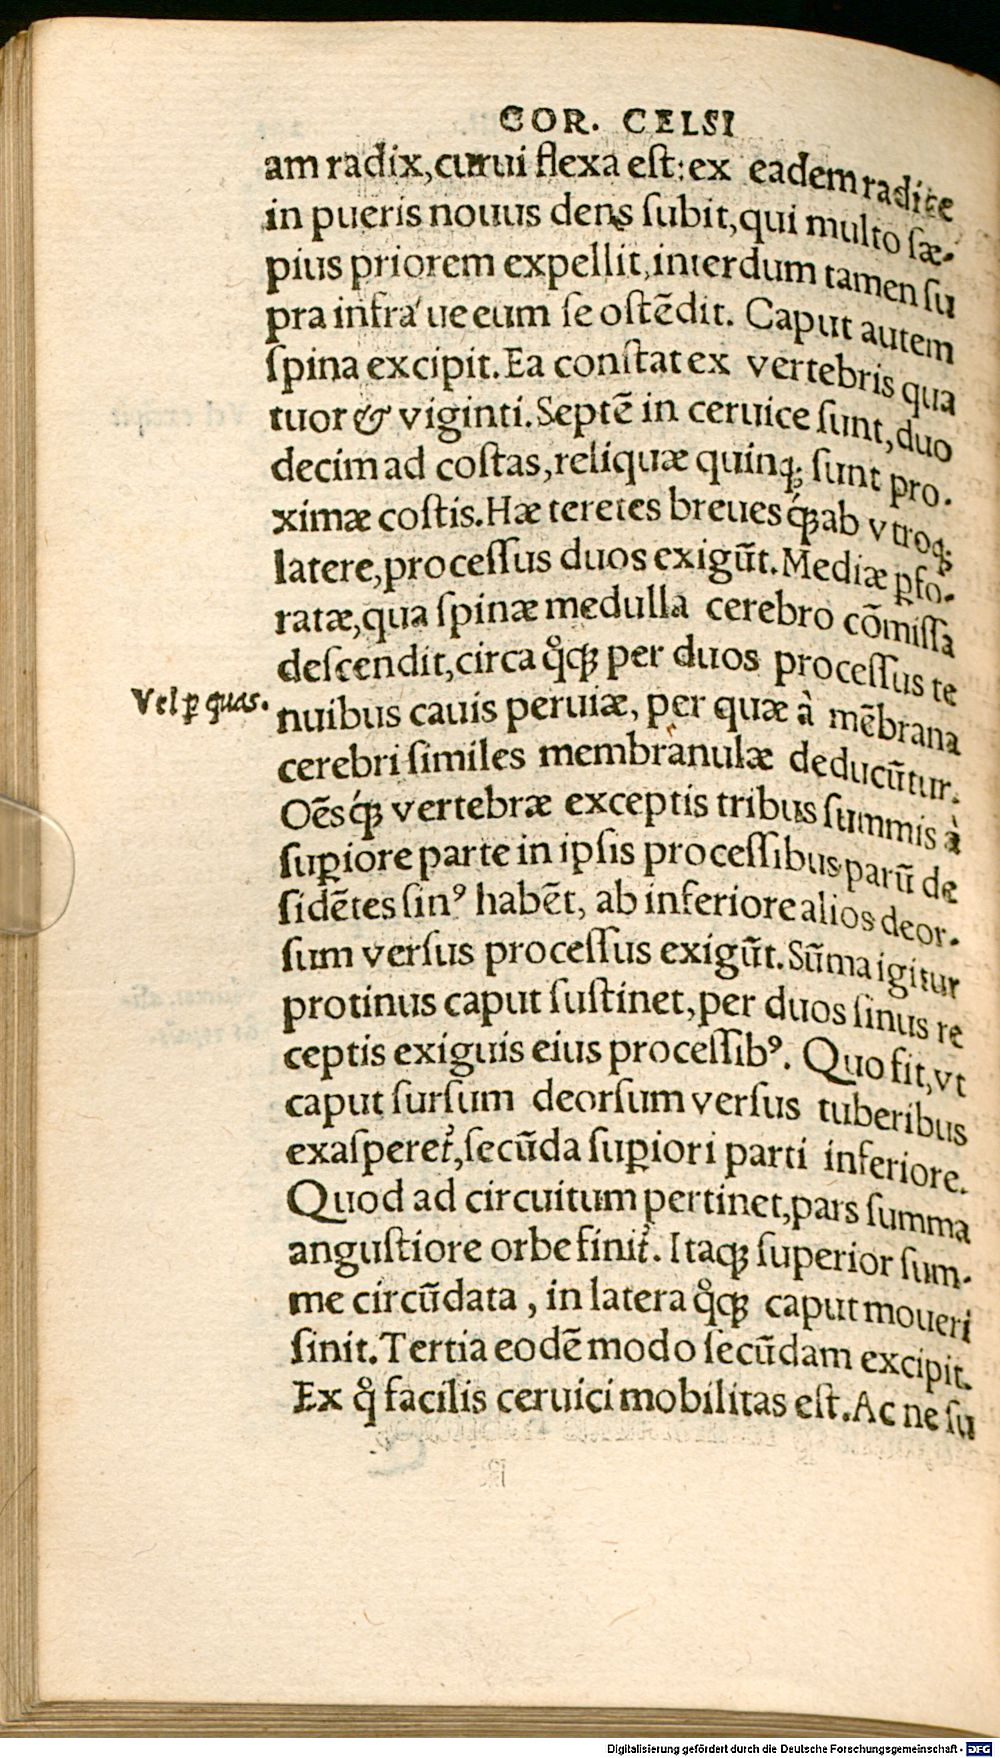 COR. CELSI
am radix, curui flexa eſt: ex eadem radice
in pueris nouus dens ſubit, qui multo ſæ-
pius priorem expellit, interdum tamen ſu
pra infra ue eum ſe oſtēdit. Caput autem
ſpina excipit. Ea conſtat ex vertebris qua
tuor & viginti. Septē in ceruice ſunt, duo
decim ad coſtas, reliquæ quinqꝫ ſunt pro-
ximæ coſtis. Hæ teretes breues qꝫ́ ab vtroqꝫ
latere, proceſſus duos exigūt. Mediæ ꝑfo-
ratæ, qua ſpinæ medulla cerebro cōmiſſa
deſcendit, circa qͦqꝫ per duos proceſſus te
Vel ꝑ quas.
nuibus cauis peruiæ, per quæ à mēbrana
cerebri ſimiles membranulæ deducūtur.
Oēsqꝫ́ vertebræ exceptis tribus ſummis à
ſuꝑiore parte in ipſis proceſſibus parū de
ſidētes ſinꝰ habēt, ab inferiore alios deor-
ſum verſus proceſſus exigūt. Sūma igitur
protinus caput ſuſtinet, per duos ſinus re
ceptis exiguis eius proceſſibꝰ. Quo fit, vt
caput ſurſum deorſum verſus tuberibus
exaſperet᷑, ſecūda ſuꝑiori parti inferiore.
Quod ad circuitum pertinet, pars ſumma
anguſtiore orbe finit᷑. Itaqꝫ ſuperior ſum-
me circūdata, in latera qͦqꝫ caput moueri
ſinit. Tertia eodē modo ſecūdam excipit.
Ex qͦ facilis ceruici mobilitas eſt. Ac ne ſu
Digitalisierung gefördert durch die Deutsche Forschungsgemeinschaft - DFG